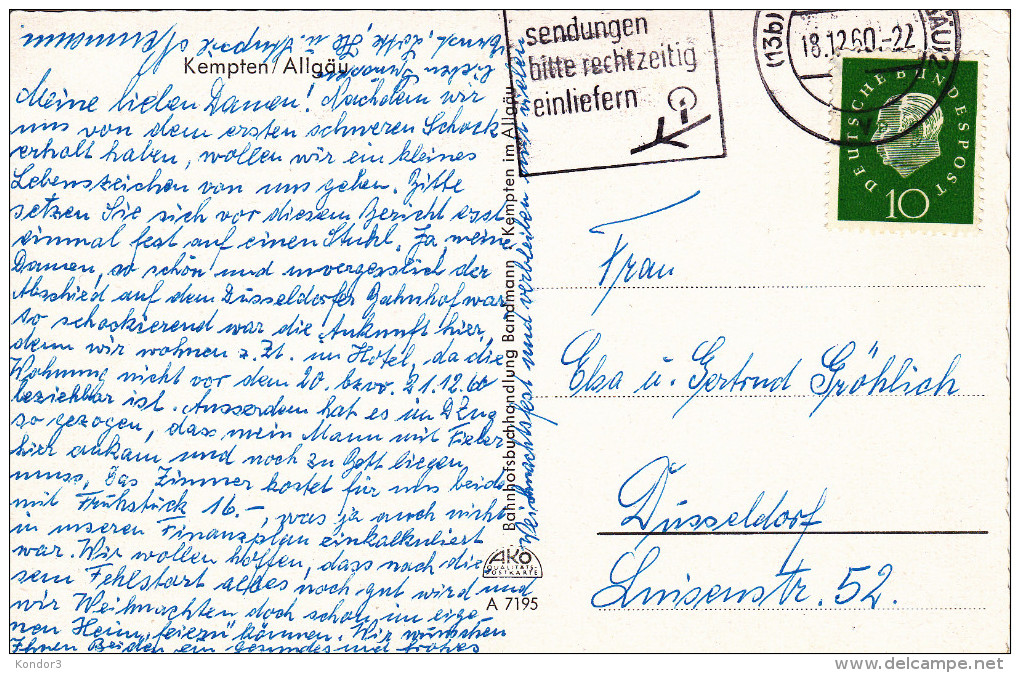 Kempten/Allgäu
Meine lieben Damen! Nachdem wir
uns von dem ersten schweren Schock
erholt haben, wollen wir ein kleines
Lebenszeichen von uns geben. Bitte
setzen Sie sich vor diesem Bericht erst
einmal fest auf einen Stuhl. Ja, meine
Damen, so schön und unvergesslich der
Abschied auf dem Düsseldorfer Bahnhof war
so schockierend war die Ankunft hier,
denn wir wohnen z. Zt. im Hotel, da die
Wohnung nicht vor dem 20. bzw. 21.12.60
beziehbar ist. Ausserdem hat es im D Zug
so gezogen, dass mein Mann mit Fieber
hier ankam und noch zu Bett liegen
muss. Das Zimmer kostet für uns beide
mit Frühstück 16.-, was ja auch nicht
in unseren Finanzplan einkalkuliert
war. Wir wollen hoffen, dass nach die-
sem Fehlstart alles noch gut wird und
wir Weihnachten doch schon im eige-
nen Heim feiern können. Wir wünschen
Ihnen Beiden ein gesundes und frohes
Weihnachtsfest und verbleiben mit vielen
lieben Grüssen
Bahnhofsbuchhandlung Bandmann, Kempten im Allgäu
AKO
QUALITÄTS-
POSTKARTE
A 7195
sendungen
bitte rechtzeitig
einliefern
(13b)
18.12.60.-22
GÄU)2
DEUTSCHE BUNDESPOST
10
Frau
Elsa u. Gertrud Fröhlich
Düsseldorf
Luisenstr. 52.
Kondor3
delcampe.net